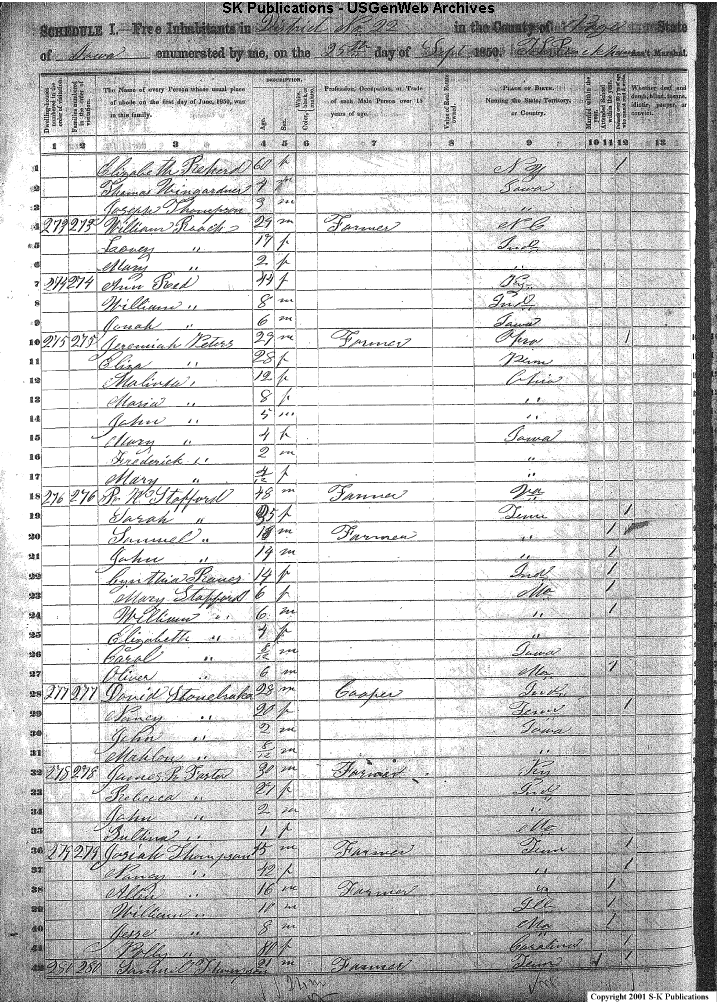 SK Publications - USGenWeb Archives
SCHEDULE I. Free Inhabitants in District No 22 in the County of Page State
of Iowa enumerated by me, on the 25th day of Sept 1850. Ass't Marshal
Dwelling-houses numbered in the order of visitation.
Families numbered in the order of visitation.
The Name of every Person whose usual place of abode on the first day of June, 1850, was in this family.
DESCRIPTION.
Age.
Sex.
Color, White, black, or mulatto.
Profession, Occupation, or Trade of each Male Person over 15 years of age.
Value of Real Estate owned.
PLACE OF BIRTH. Naming the State, Territory, or Country.
Married within the year.
Attended School within the year.
Whether deaf and dumb, blind, insane, idiotic, pauper, or convict.
1 2 3 4 5 6 7 8 9 10 11 12 13
1 Elizabeth 60 f N Y 1
2 Thomas Wingardner Iowa
3 Joseph Thompson 3 m "
4 273 273 William Roach 29 m Farmer N C
5 " f Ind
6 Mary " 2 f "
7 274 274 Ann Reed 44 f Ky
8 William " 8 m Ind
9 Jonah " 6 m Iowa
10 275 275 Jeremiah Peters 29 m Farmer Ohio 1
11 Eliza " 28 f
12 Malinda " 12 f Ohio
13 Maria " 8 f "
14 John " 5 m "
15 Mary " 4 f Iowa
16 Frederick " 2 m "
17 Mary " 4/12 f "
18 276 276 Stafford 48 m Farmer Va
19 Sarah " f Tenn 1
20 Samuel " 18 m Farmer " 1
21 John " 14 m " 1
22 Cynthia 14 f Ind 1
23 Mary Stafford 6 f Mo 1
24 William " 6 m " 1
25 Elizabeth " 4 f "
26 Carol " 8/12 m Iowa
27 Oliver " 6 m Mo 1
28 277 277 David Stonebraker 28 m Cooper Ind
29 Nancy " 20 f Tenn 1
30 John " 2 m Iowa
31 Mahlon " 8/12 m "
32 278 278 James R Foster 30 m Farmer Ky
33 Rebecca " 27 f Ind
34 John " 2 m "
35 " 1 f Mo
36 279 279 Josiah Thompson 45 m Farmer Tenn 1
37 Nancy " 42 f " 1
38 Allen " 16 m Farmer "
39 William " 10 m Ill 1
40 Jesse " 8 m Mo 1
41 Polly " 80 f Carolina 1
42 280 280 Samuel Thompson 21 m Farmer Tenn 1 1
Copyright 2001 S-K Publications